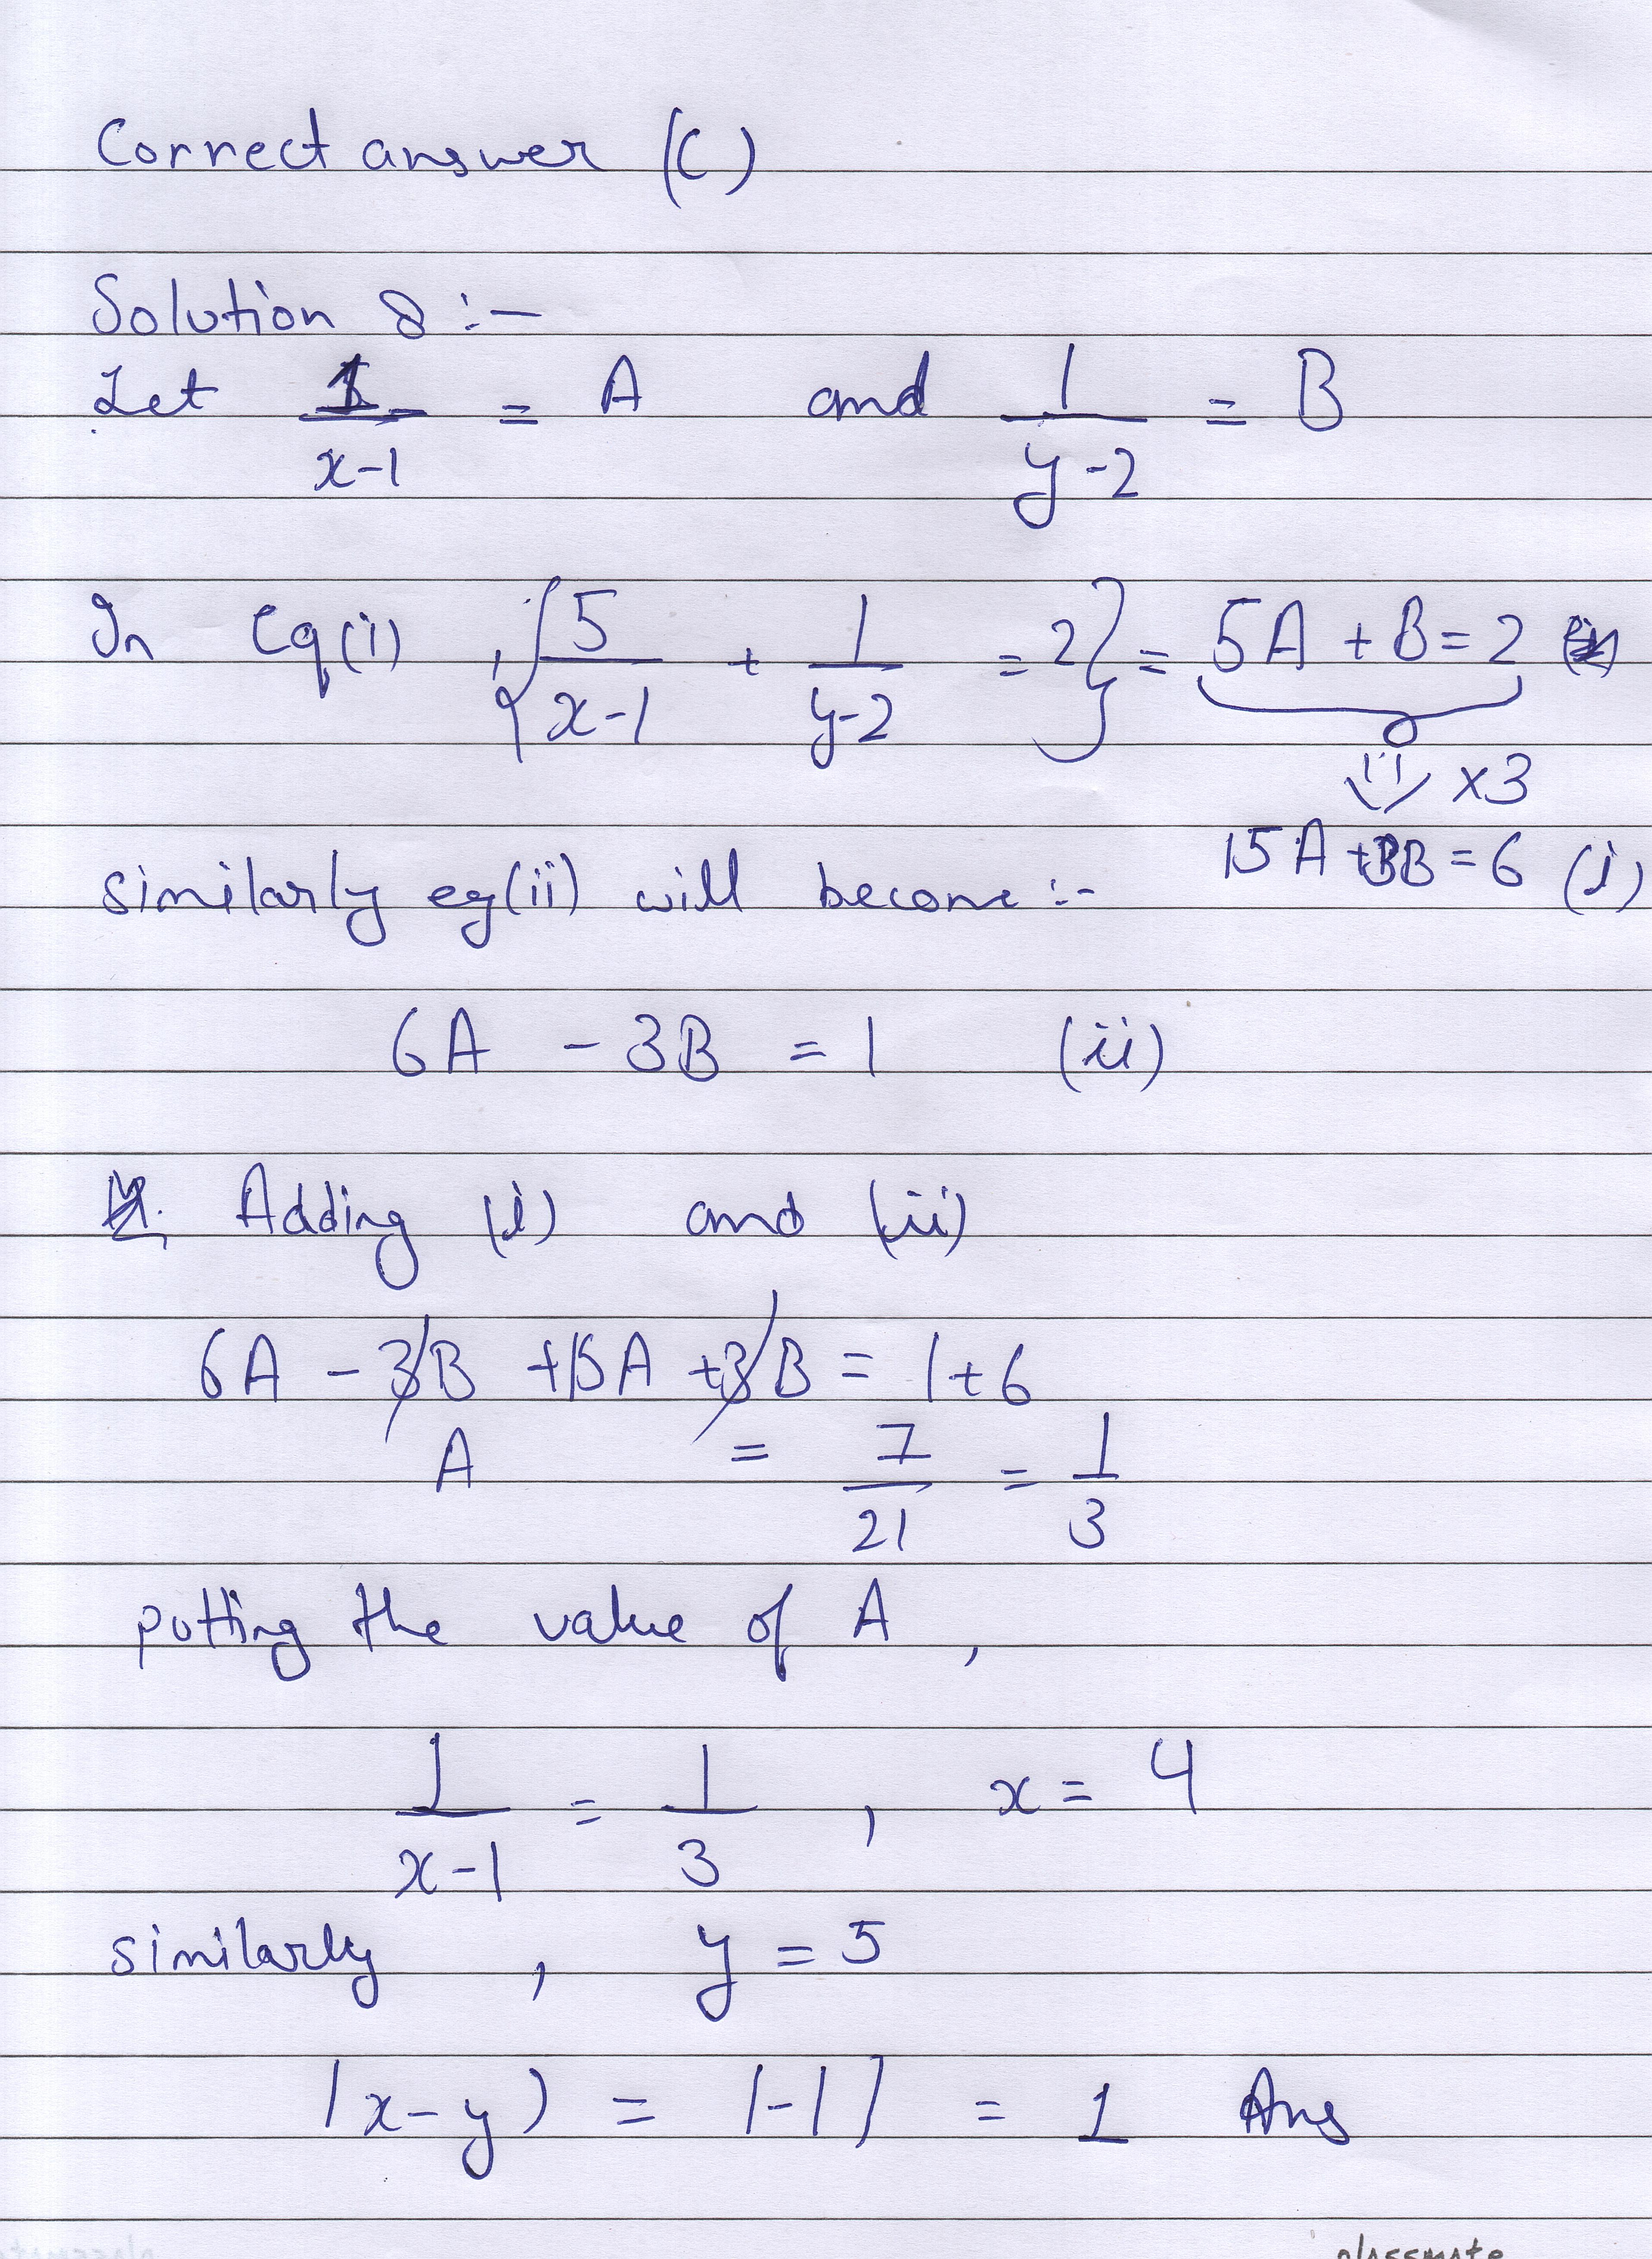 Correct answer (C)
Solution 8 :-
Let 1/(x-1) = A and 1/(y-2) = B
In Eq(i) , { 5/(x-1) + 1/(y-2) = 2 } = 5A + B = 2
⇓ ×3
15A + 3B = 6 (i)
similarly eq(ii) will become :-
6A - 3B = 1 (ii)
Adding (i) and (ii)
6A - 3B + 15A + 3B = 1 + 6
A = 7/21 = 1/3
putting the value of A ,
1/(x-1) = 1/3 , x = 4
similarly , y = 5
|x-y) = |-1| = 1 Ans
classmate